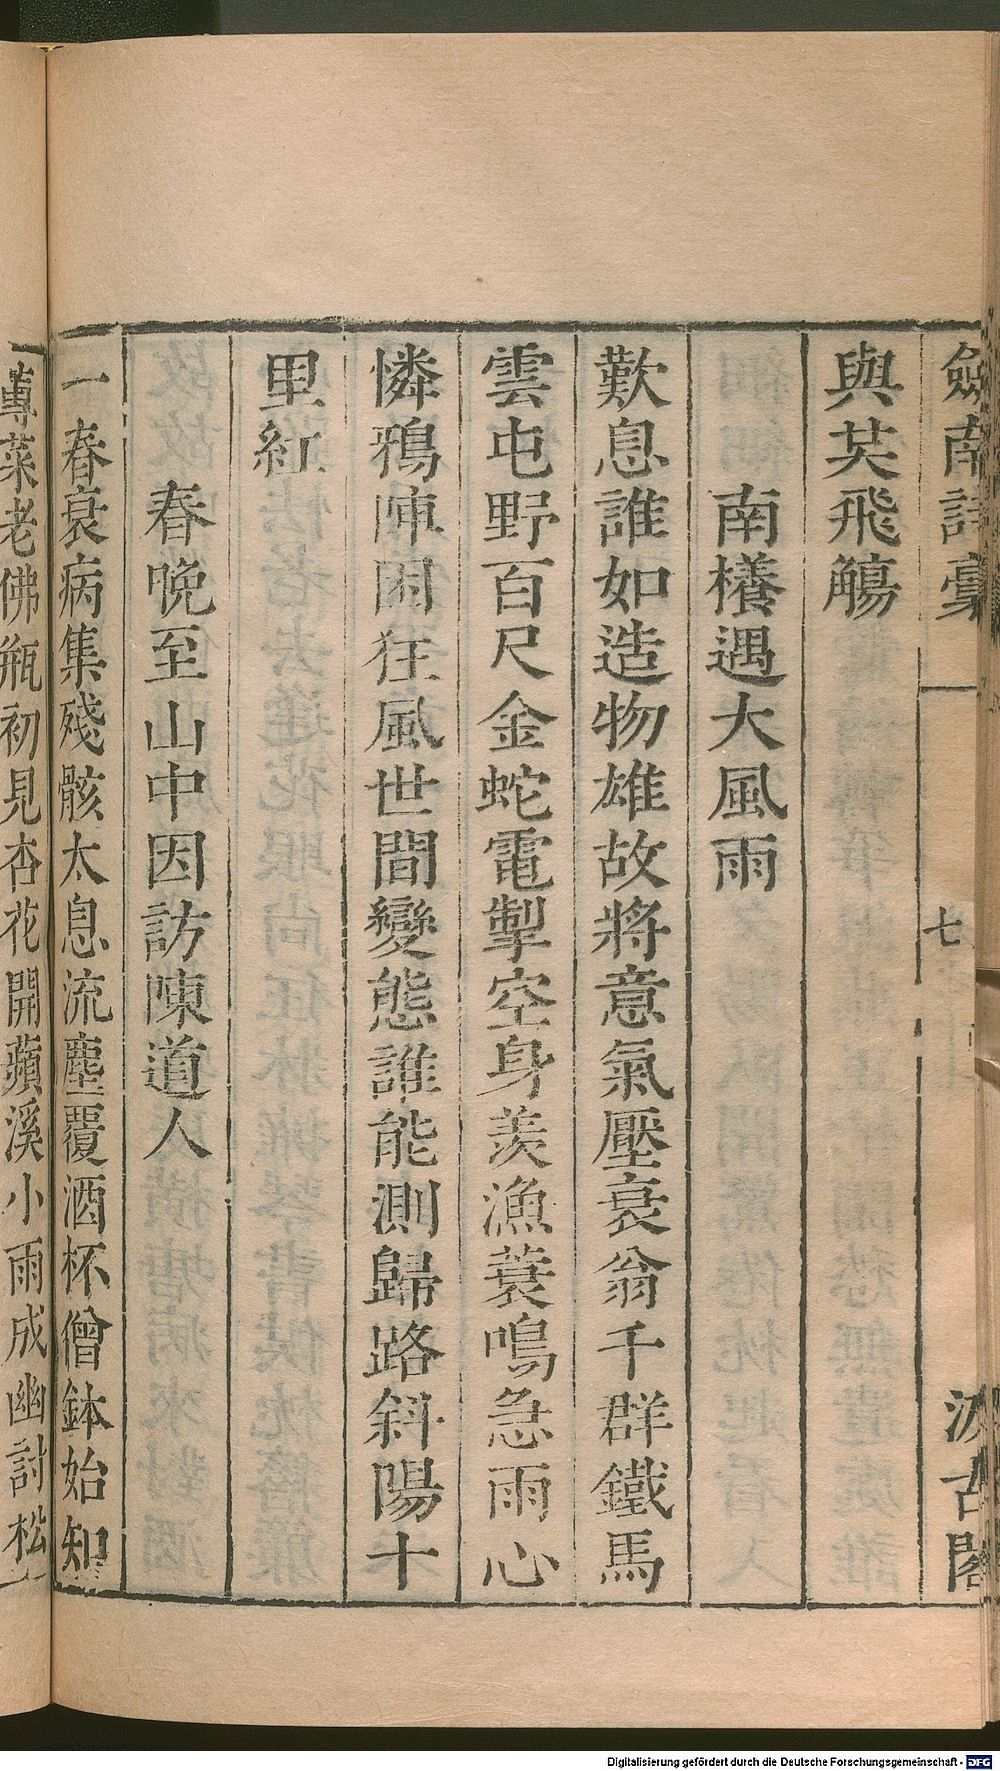 劍南詩稾
七
汲古閣
與共飛觴
南㰖遇大風雨
歎息誰如造物雄故將意氣壓衰翁千群鐵馬
雲屯野百尺金蛇電掣空身羨漁蓑鳴急雨心
憐鴉陣困狂風世間變態誰能測歸路斜陽十
里紅
春晚至山中因訪陳道人
一春衰病集殘骸太息流塵覆酒杯僧鉢始知
蓴菜老佛瓶初見杏花開蘋溪小雨成幽討松
Digitalisierung gefördert durch die Deutsche Forschungsgemeinschaft - DFG